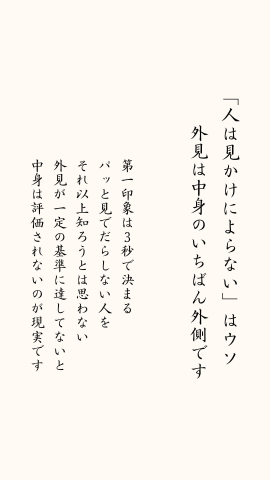 「人は見かけによらない」はウソ
外見は中身のいちばん外側です
第一印象は3秒で決まる
パッと見でだらしない人を
それ以上知ろうとは思わない
外見が一定の基準に達してないと
中身は評価されないのが現実です